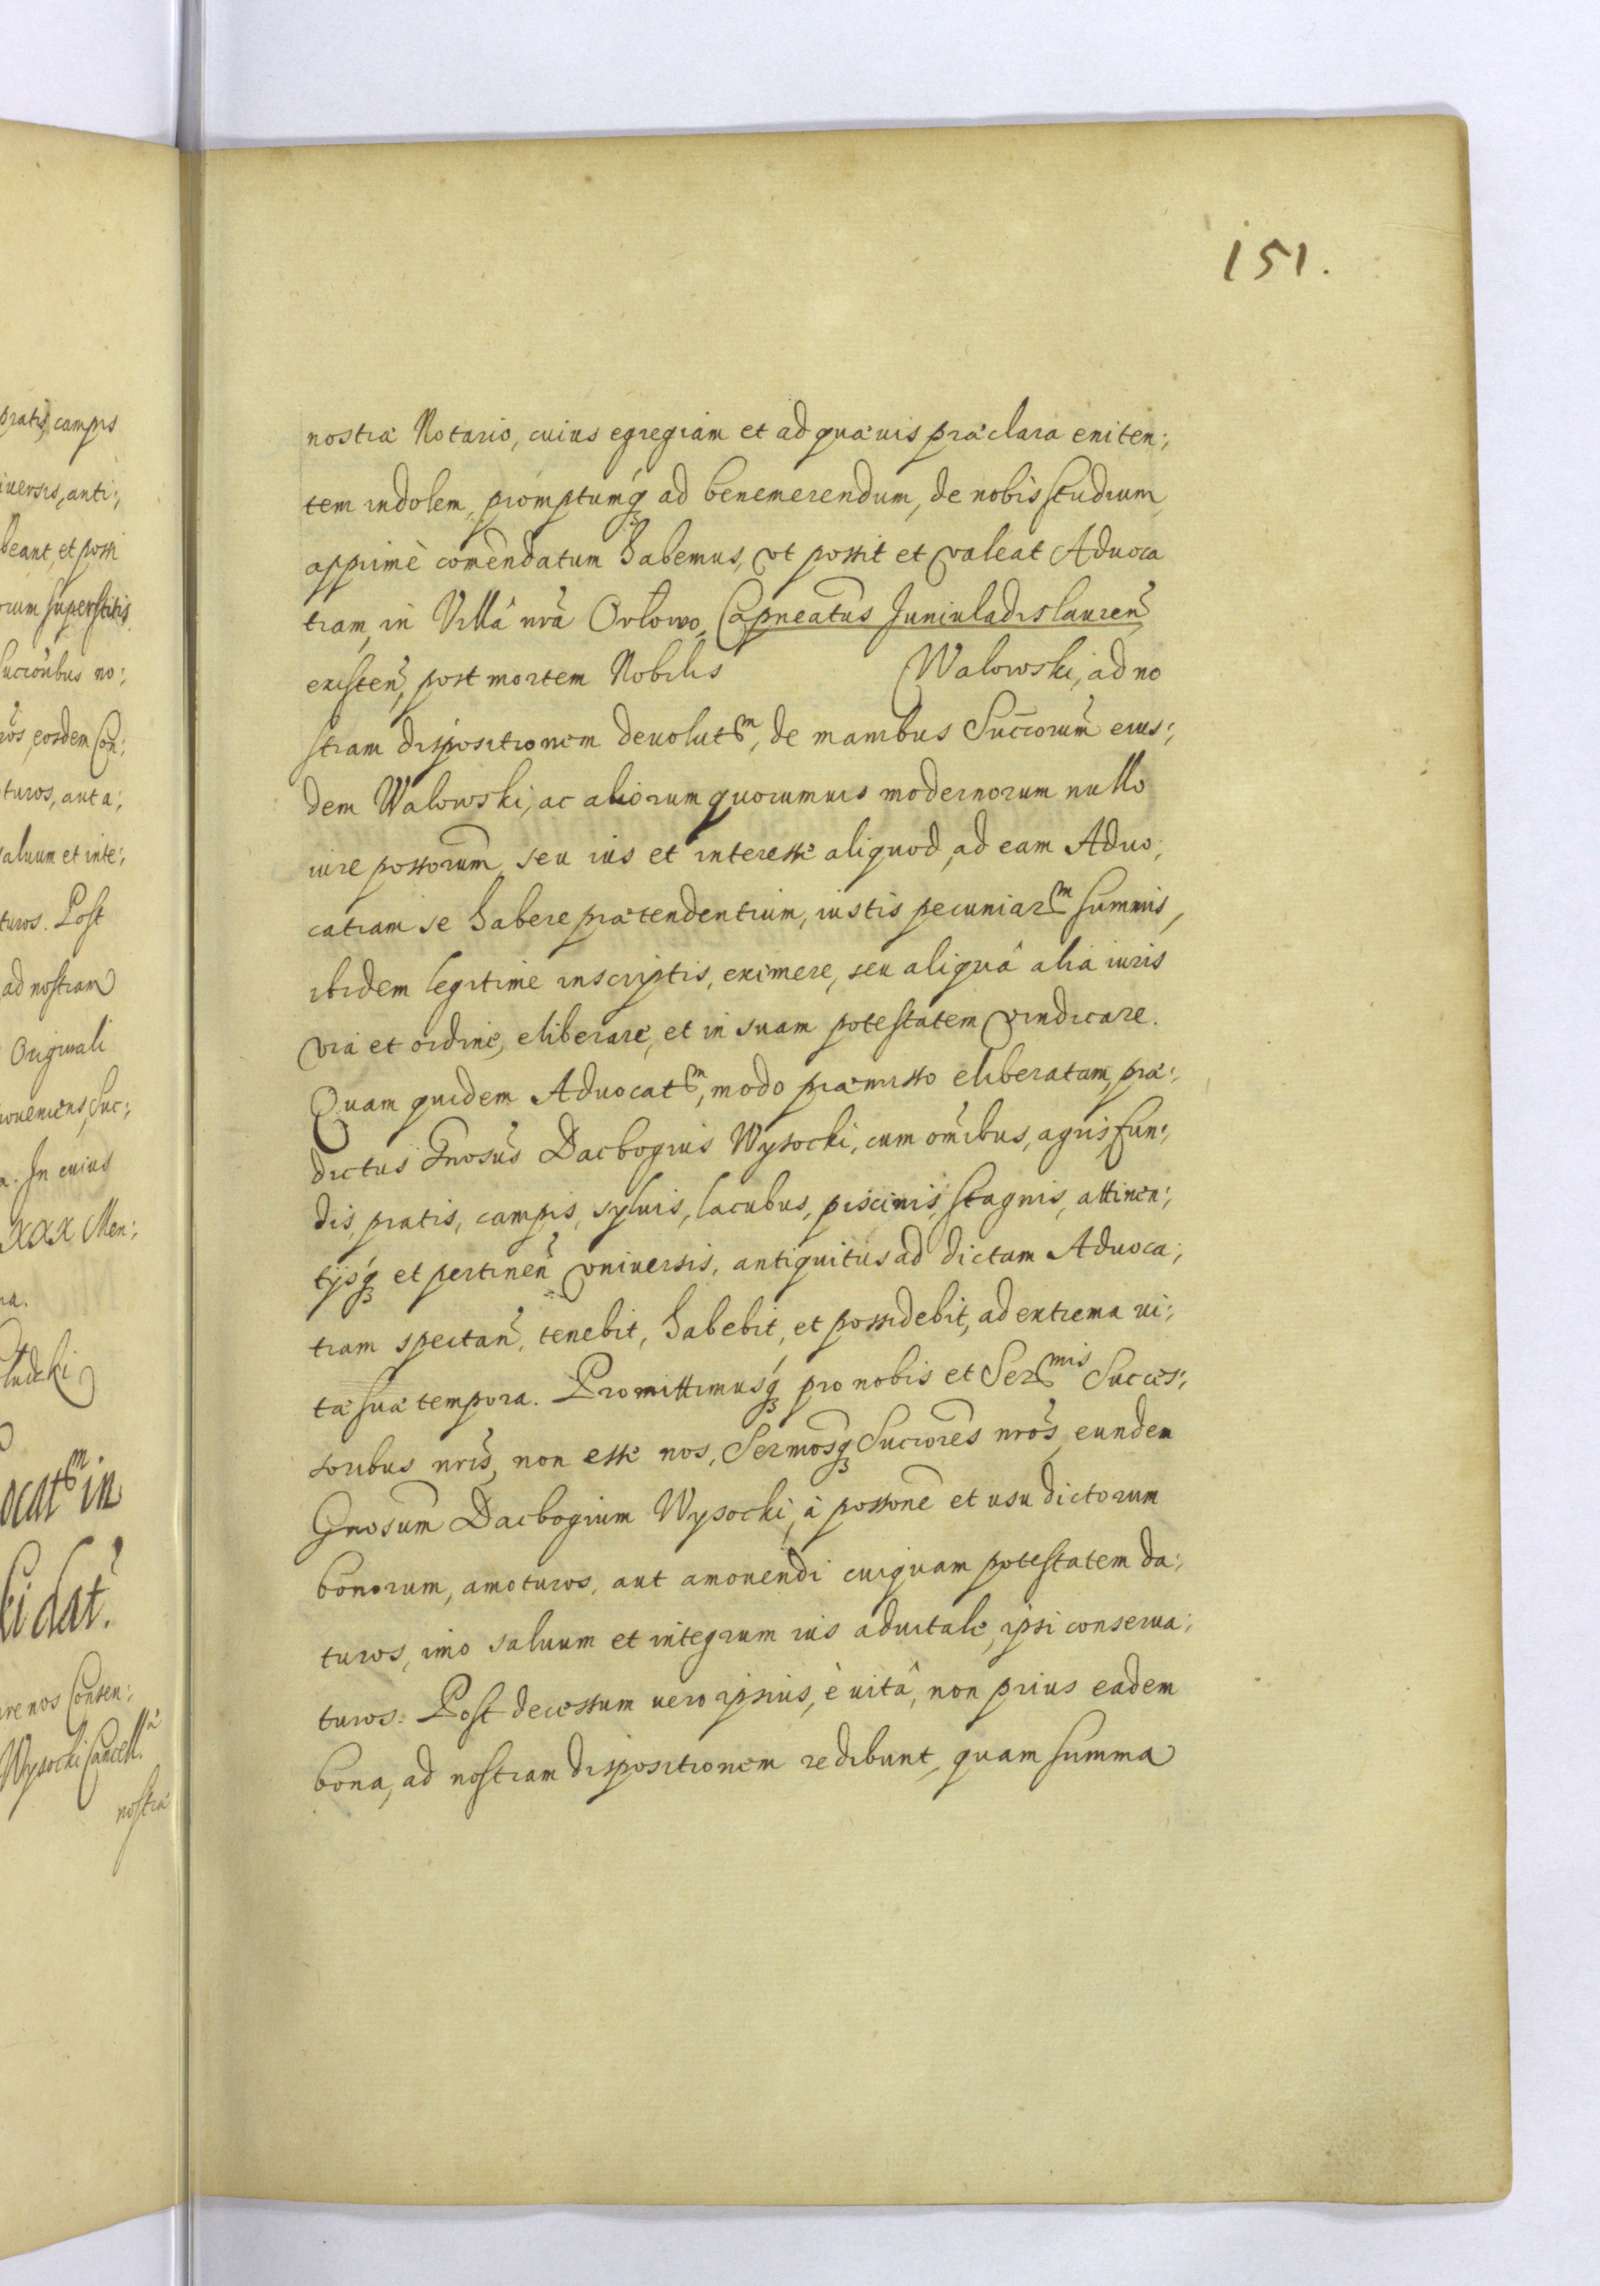 151.
pratis, campis
iversis, anti:,
beant, et possi
rum superstitis
succõribus no:,
rõs, eosdem Con:,
turos, aut a:,
saluum et inte:,
turos. Post
ad nostram
Originali
a. In cuius
XXX Men:,
ocatem in
ki dat.
re nos Consen:,
Wysocki Cancell.
nostræ
nostræ Notario, cuius egregiam et ad quæuis præclara eniten:,
tem indolem, promptumq́ꝫ ad benemerendum, de nobis studium,
apprimè comēndatum habemus, vt possit et valeat Aduoca
tiam, in Villâ nr̃a Orłowo, Capneatus Juniuladislauien̄
existen̄, post mortem Nobilis Walowski, ad no
stram dispositionem deuolutam, de manibus Succorum̃ eius:,
dem Walowski, ac aliorum quorumuis modernorum nullo
iure possorum̃ seu ius et interesse aliquod, ad eam Aduo:,
catiam se habere prætendentium, iustis pecuniarum summis,
ibidem legitime inscriptis, eximere, seu aliquâ alia iuris
via et ordine, eliberare, et in suam potestatem vindicare.
Quam quidem Aduocatm, modo præmisso eliberatam, præ:,
dictus Gnosus̃ Dacbogius Wysocki, cum om̃ibus, agris, fun:,
dis, pratis, campis, syluis, lacubus, piscinis, stagnis, attinen:,
tijsq́ꝫ et pertinen̄ vniuersis, antiquitus ad dictam Aduoca:,
tiam spectan̄, tenebit, habebit, et possidebit, ad extrema ui:,
tæ suæ tempora. Promittimusq́ꝫ pro nobis et Sermis Succes:,
soribus nris̃, non esse nos, Sermosq̃ꝫ Succores̃ nros̃, eundem
Gnosum̃ Dacbogium Wysocki, à possone̅ et usu dictorum
bonorum, amoturos, aut amouendi cuiquam potestatem da:,
turos, imo saluum et integrum ius aduitale, ipsi conserua:,
turos. Post decessum uero ipsius, è uitâ, non prius eadem
bona, ad nostram dispositionem redibunt, quam summa